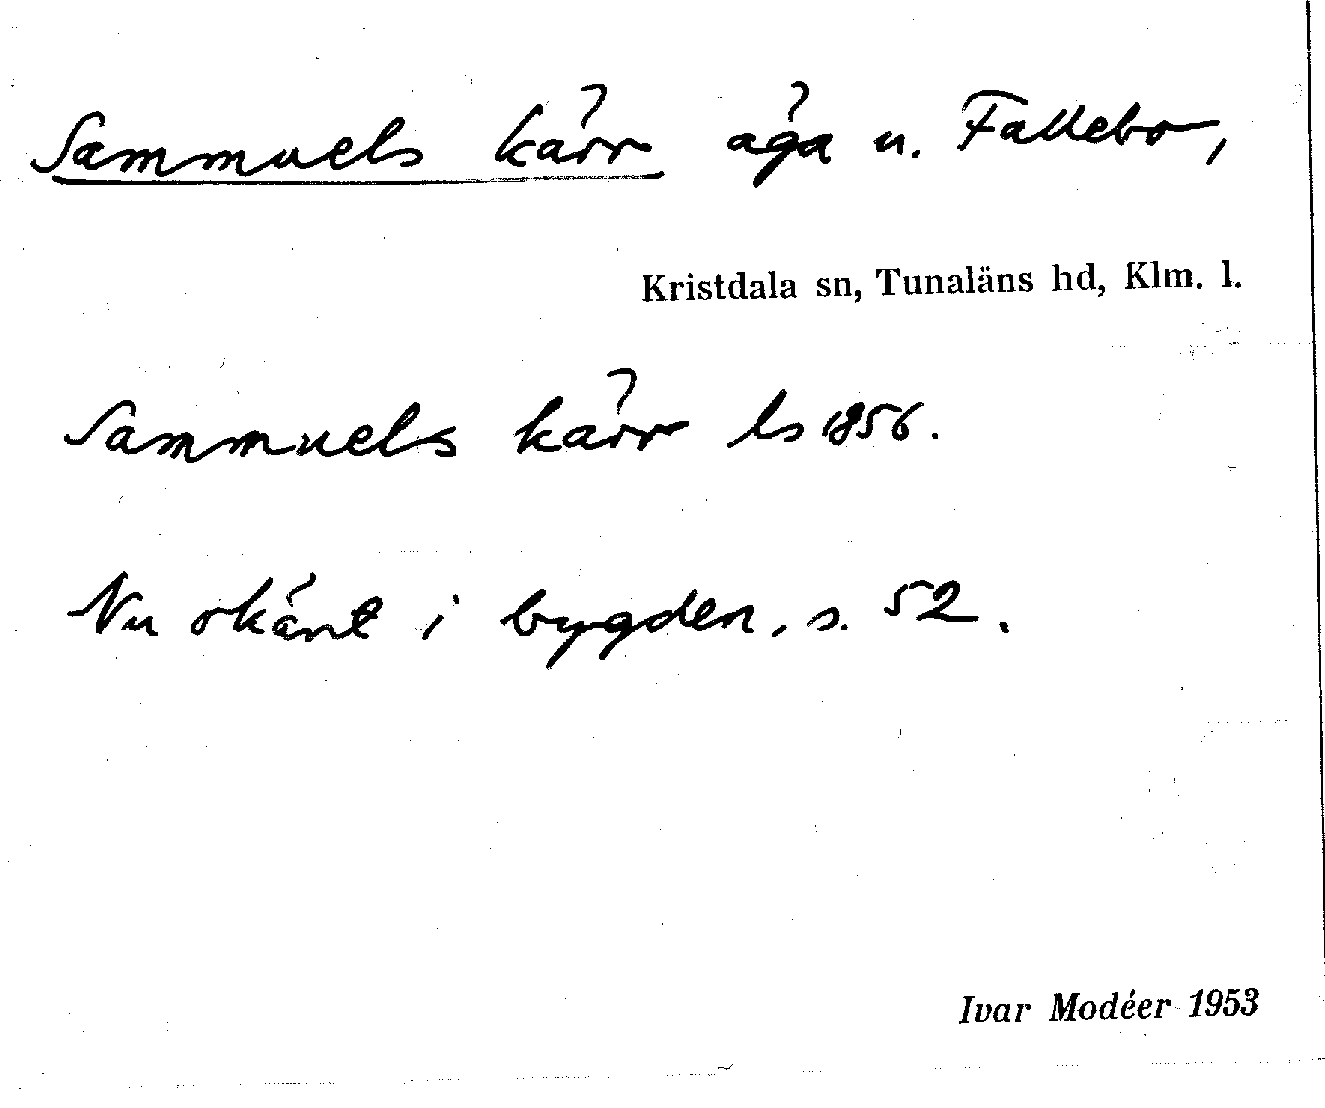 Sammuels kärr äga u. Fallebo,
Kristdala sn, Tunaläns hd, Klm. l.
Sammuels kärr ls 1856.
Nu okänt i bygden, s. 52.
Ivar Modéer 1953